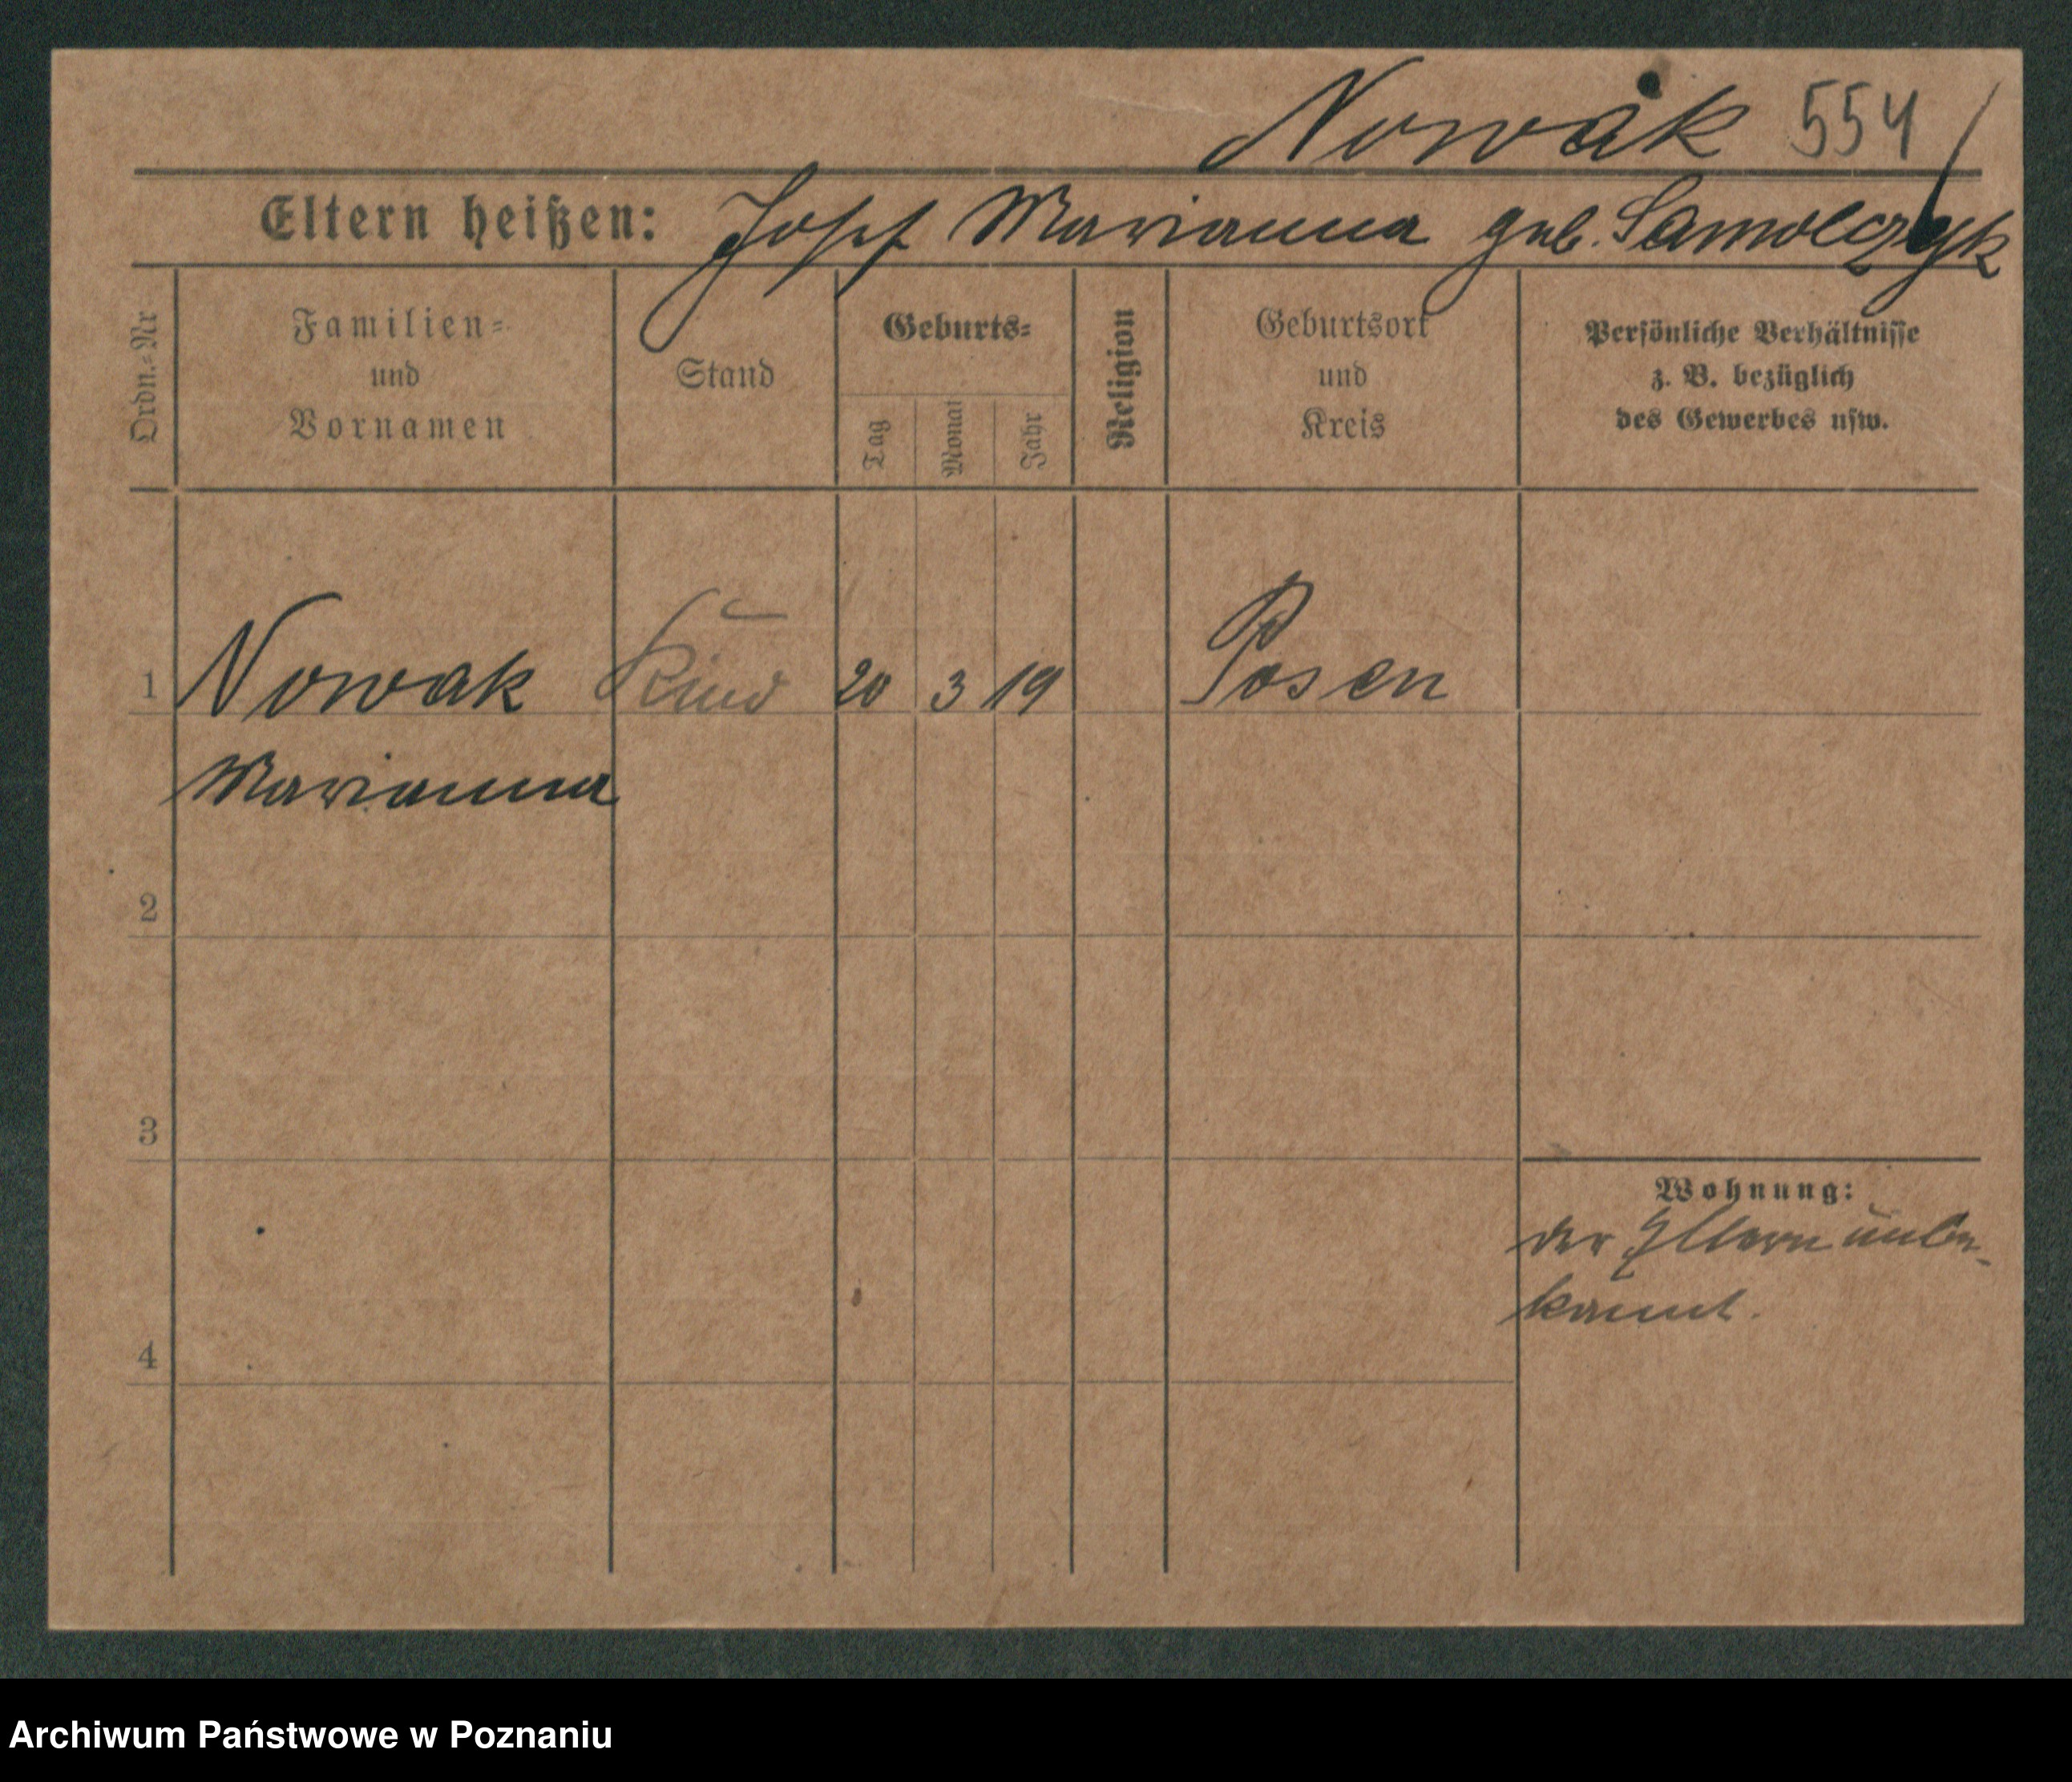 Nowak 554
Eltern heißen: Josef Marianna geb. Samolczyk
Ordn.-Nr
Familien-
und
Vornamen
Stand
Geburts-
Tag
Monat
Jahr
Religion
Geburtsort
und
Kreis
Persönliche Verhältnisse
z. B. bezüglich
des Gewerbes usw.
1 Nowak Kind 20 3 19 Posen
Marianna
2
3
Wohnung:
der Eltern unbe-
kannt.
4
Archiwum Państwowe w Poznaniu